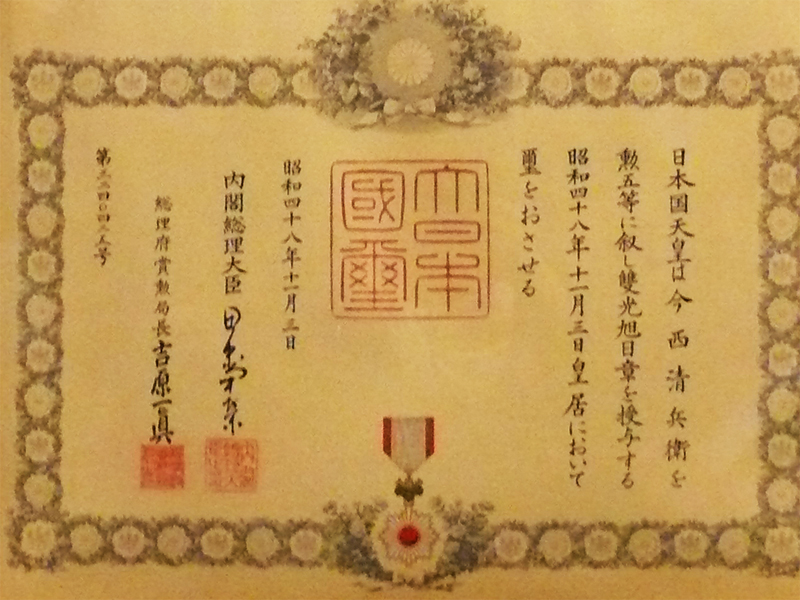 日本国天皇は今西清兵衛を
勲五等に叙し雙光旭日章を授与する
昭和四十八年十一月三日皇居において
璽をおさせる
大日本
國璽
昭和四十八年十一月三日
内閣総理大臣 田中角栄
総理府賞勲局長 吉原一眞